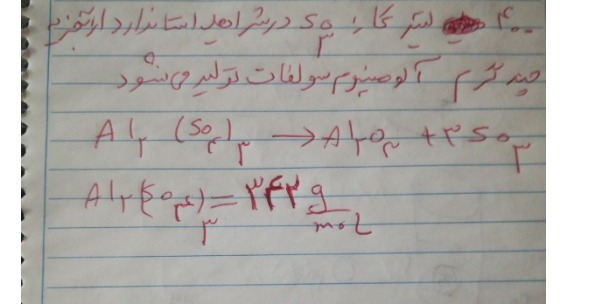 ۴۰۰ لیتر گاز SO۳ در شرایط استاندارد از تجزیه
چند گرم آلومینیوم سولفات تولید می‌شود
Al۲ (SO۴)۳ → Al۲O۳ + ۳SO۳
Al۲(SO۴)۳ = ۳۴۲ g/mol